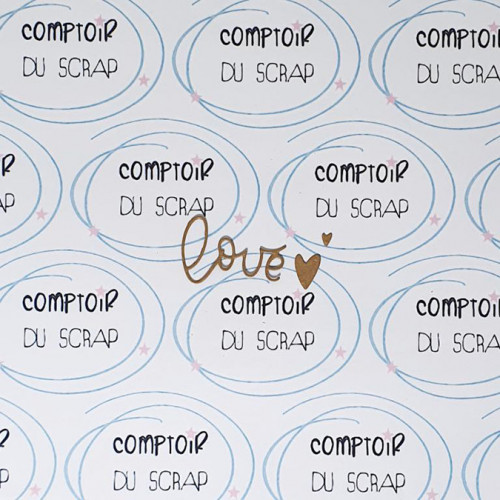 COMPTOIR
DU SCRAP
COMPTOIR
DU SCRAP
COMPTOI
DU SCRA
R
AP
COMPTOIR
DU SCRAP
COMPTOIR
DU SCRAP
love
COMPTOIR
DU SCRAP
COMPTOIR
DU SCRAP
COMPTOI
DU SCRA
R
P
COMPTOIR
DU SCRAP
COMPTOIR
DU SCRAP